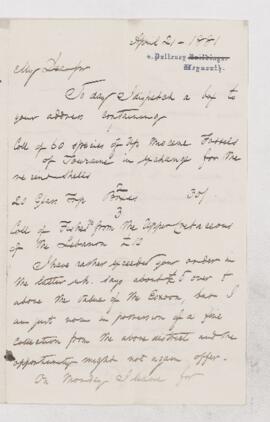 April 21 - 1881
2, Pulteney Buildings,
Weymouth.
My Dear Sir
To day I dispatch a box to
your address containing
Coll of 60 species of Up Miocene Fossils
of Touraine in exchange for the
recent shells
20 Glass Top Boxes 30/
Coll of Fishes from the Upper Cretaceous
of Mt Lebanon £10
I have rather exceeded your order in
the letter wh. says about £5 over &
above the value of the, but I
am just now in possession of a fine
collection from the above district and the
opportunity might not again offer.
On Monday I leave for